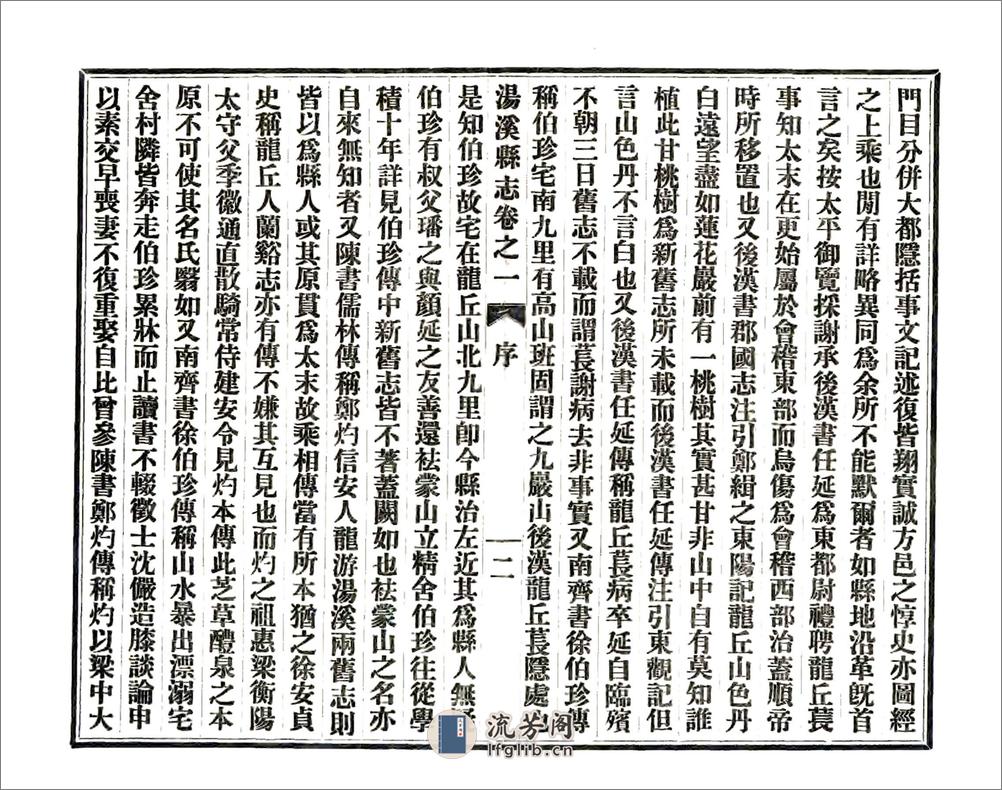 門目分併大都隱括事文記述復皆翔實誠方邑之惇史亦圖經
之上乘也閒有詳略異同爲余所不能默爾者如縣地沿革旣首
言之矣按太平御覽採謝承後漢書任延爲東都尉禮聘龍丘萇
事知太末在更始屬於會稽東部而烏傷爲會稽西部治蓋順帝
時所移置也又後漢書郡國志注引鄭緝之東陽記龍丘山色丹
白遠望盡如蓮花巖前有一桃樹其實甚甘非山中自有莫知誰
植此甘桃樹爲新舊志所未載而後漢書任延傳注引東觀記但
言山色丹不言白也又後漢書任延傳稱龍丘萇病卒延自臨殯
不朝三日舊志不載而謂萇謝病去非事實又南齊書徐伯珍傳
稱伯珍宅南九里有高山班固謂之九巖山後漢龍丘萇隱處也
湯溪縣志卷之一 序 二
是知伯珍故宅在龍丘山北九里卽今縣治左近其爲縣人無疑
伯珍有叔父璠之與顏延之友善還袪蒙山立精舍伯珍往從學
積十年詳見伯珍傳中新舊志皆不著蓋闕如也袪蒙山之名亦
自來無知者又陳書儒林傳稱鄭灼信安人龍游湯溪兩舊志則
皆以爲縣人或其原貫爲太末故乘相傳當有所本猶之徐安貞
史稱龍丘人蘭谿志亦有傳不嫌其互見也而灼之祖惠梁衡陽
太守父季徽通直散騎常侍建安令見灼本傳此芝草醴泉之本
原不可使其名氏翳如又南齊書徐伯珍傳稱山水暴出漂溺宅
舍村隣皆奔走伯珍累牀而止讀書不輟徵士沈儼造膝談論申
以素交早喪妻不復重娶自比曾參陳書鄭灼傳稱灼以梁中大
流芳阁
lfglib.cn